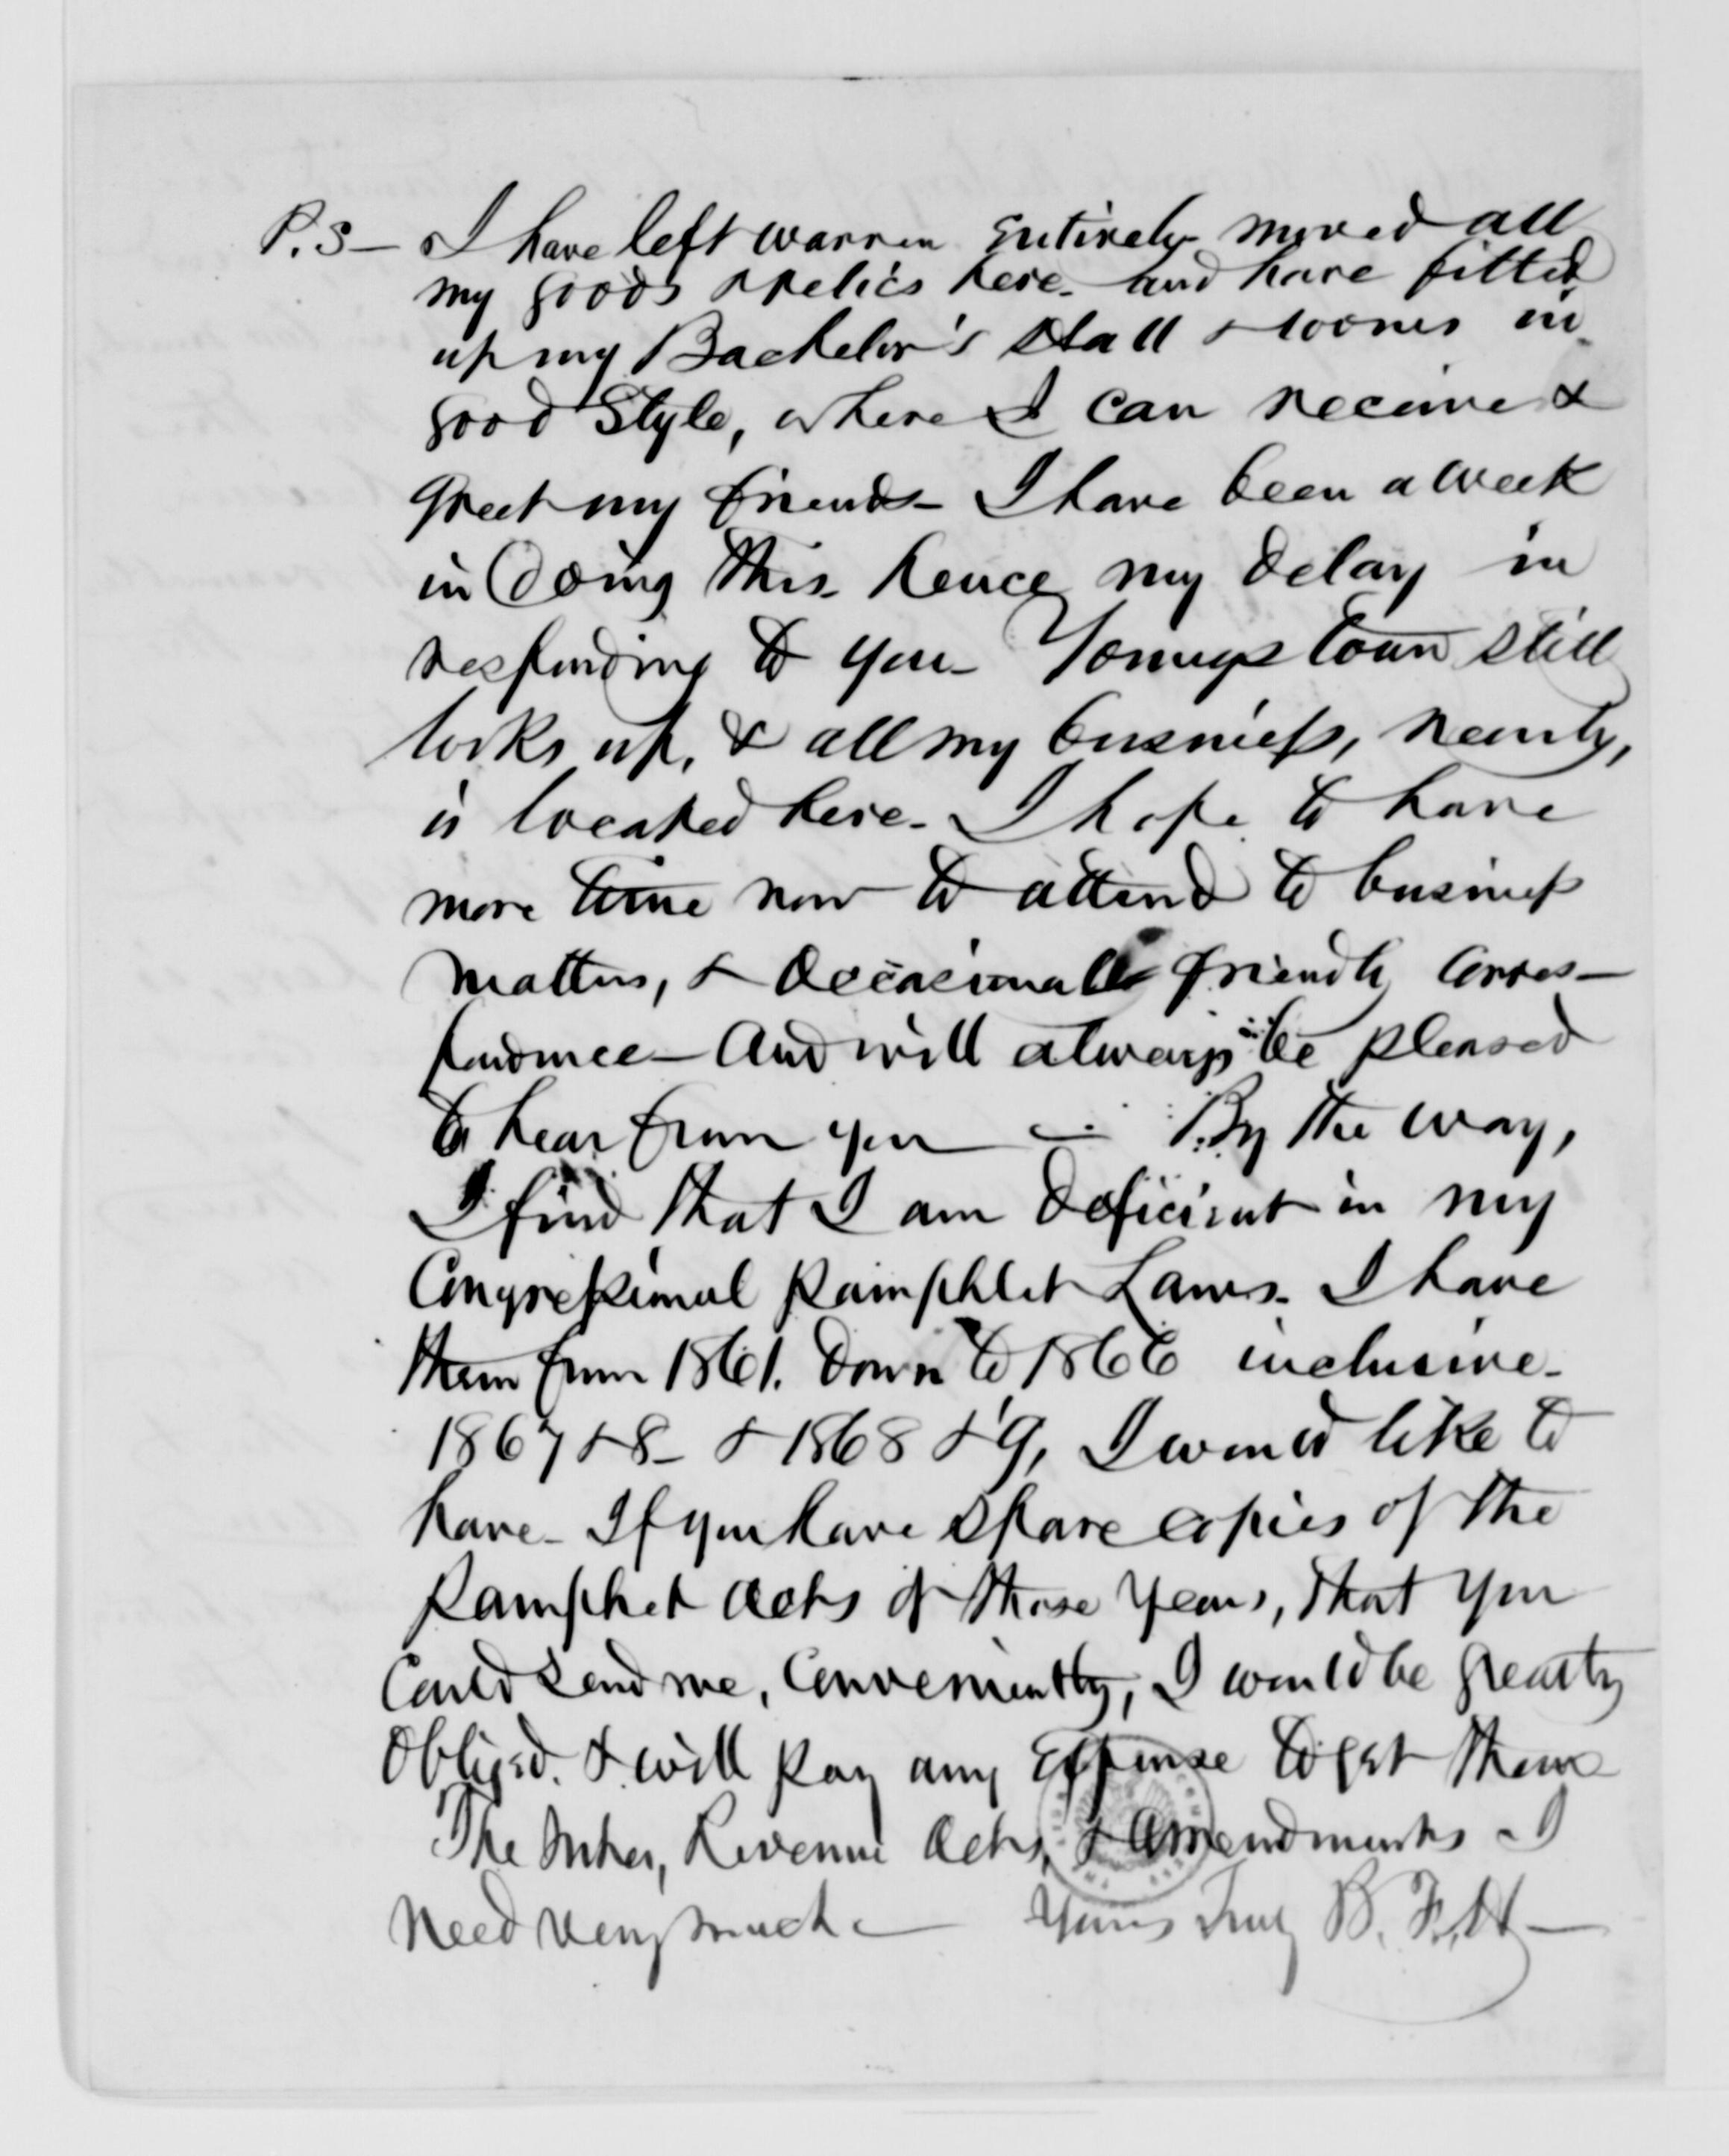 P.S— I have left Warren entirely moved all
my goods & relics here. and have fitted
up my Bachelor's Hall & rooms in
good Style, where I can receive &
Greet my friends— I have been a week
in Doing this. hence my Delay in
responding to you— Youngstown still
looks up, & all my business, nearly,
is located here— I hope to have
more time now to attend to business
matters, & Occasional friendly Corres—
pondence— And will always be pleased
to hear from you — By the way,
I find that I am Deficient in my
Congressional Pamphlet Laws. I have
them from 1861. Down to 1866 inclusive—
1867 & 8— & 1868 & '9, I would like to
have— If you have spare copies of the
Pamphlet Acts of those Years, that you
Could Send me, Conveniently, I would be greatly
Obliged. & will pay any Expense to get them
The Inter, Revenue Acts, & Amendments I
need very much — Yours Truly B. F. H—